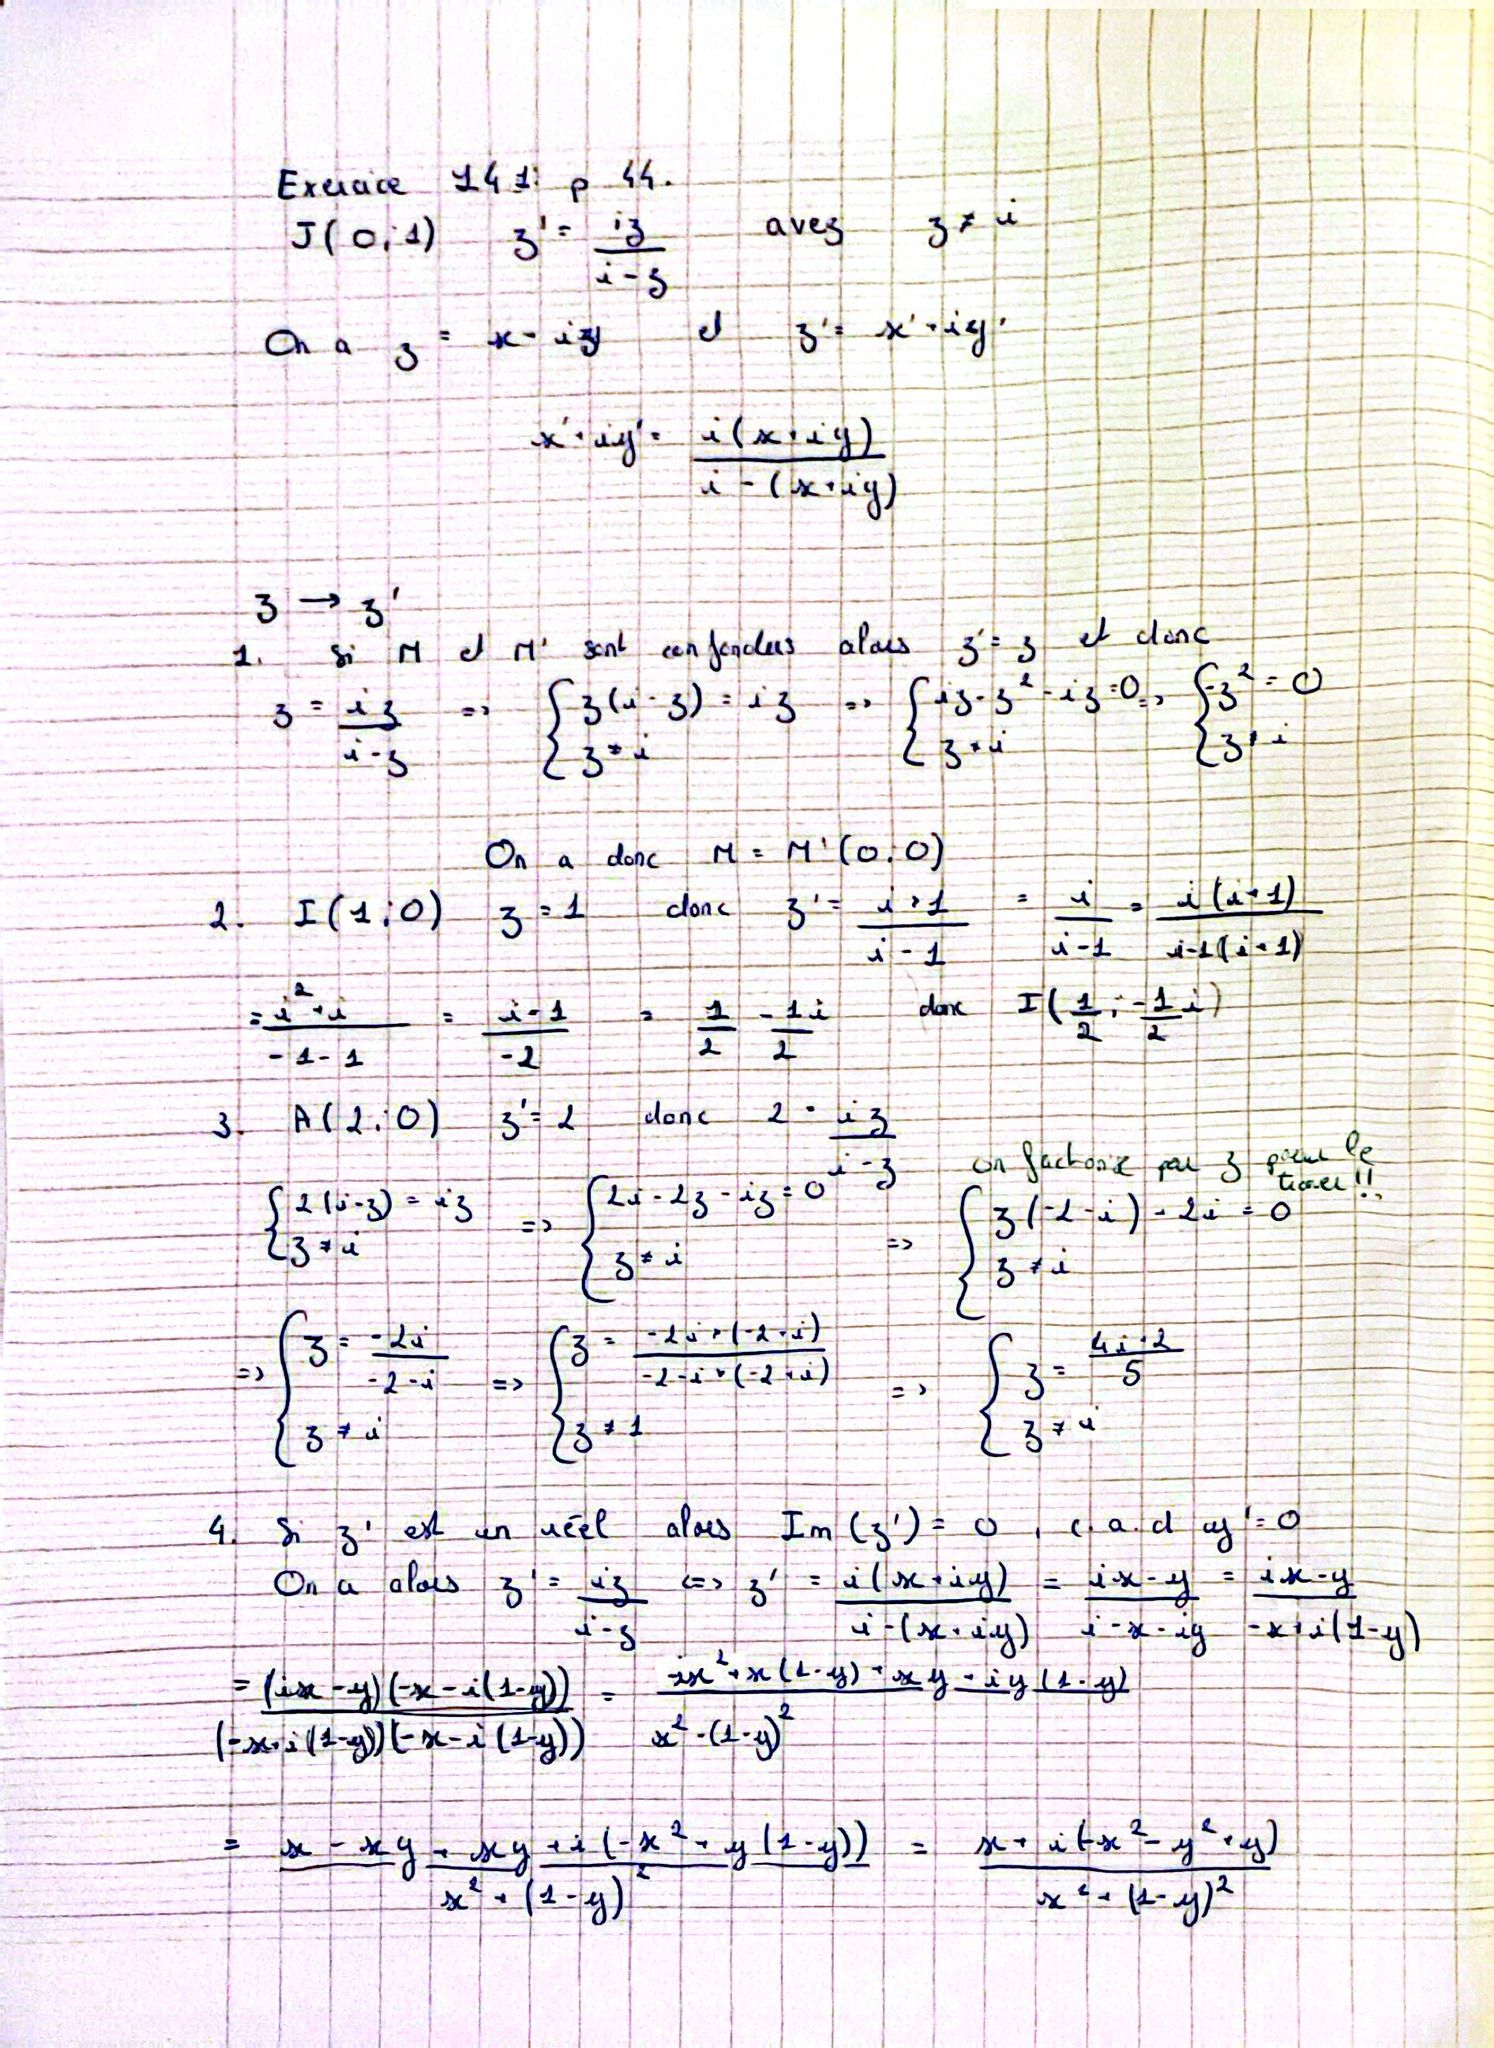 Exercice 141: p 44.
J(0;1) z' = iz/(i-z) avez z ≠ i
On a z = x-iy et z' = x'+iy'
x'+iy' = i(x+iy)/(i-(x+iy))
z → z'
1. Si M et M' sont confondus alors z'=z et donc
z = iz/(i-z) => { z(i-z) = iz ; z≠i => { iz-z²-iz=0 ; z≠i => { -z²=0 ; z≠i
On a donc M = M'(0;0)
2. I(1;0) z=1 donc z' = i×1/(i-1) = i/(i-1) = i(i+1)/(i-1(i+1))
= (i²+i)/(-1-1) = (i-1)/(-2) = 1/2 - 1/2 i donc I(1/2 ; -1/2 i)
3. A(2;0) z'=2 donc 2 = iz/(i-z)
on factorise par z pour le
trouver !!
{ 2(i-z) = iz ; z≠i => { 2i-2z-iz=0 ; z≠i => { z(-2-i)+2i=0 ; z≠i
=> { z = -2i/(-2-i) ; z≠i => { z = -2i×(-2+i)/(-2-i×(-2+i)) ; z≠1 => { z = (4i+2)/5 ; z≠i
4. Si z' est un réel alors Im(z') = 0, c.a.d y'=0
On a alors z' = iz/(i-z) <=> z' = i(x+iy)/(i-(x+iy)) = (ix-y)/(i-x-iy) = (ix-y)/(-x+i(1-y))
= (ix-y)(-x-i(1-y))/((-x+i(1-y))(-x-i(1-y))) = (-ix²+x(1-y)+xy+iy(1-y))/(x²-(1-y)²)
= (x-xy+xy+i(-x²+y(1-y)))/(x²+(1-y)²) = (x+i(-x²-y²+y))/(x²+(1-y)²)